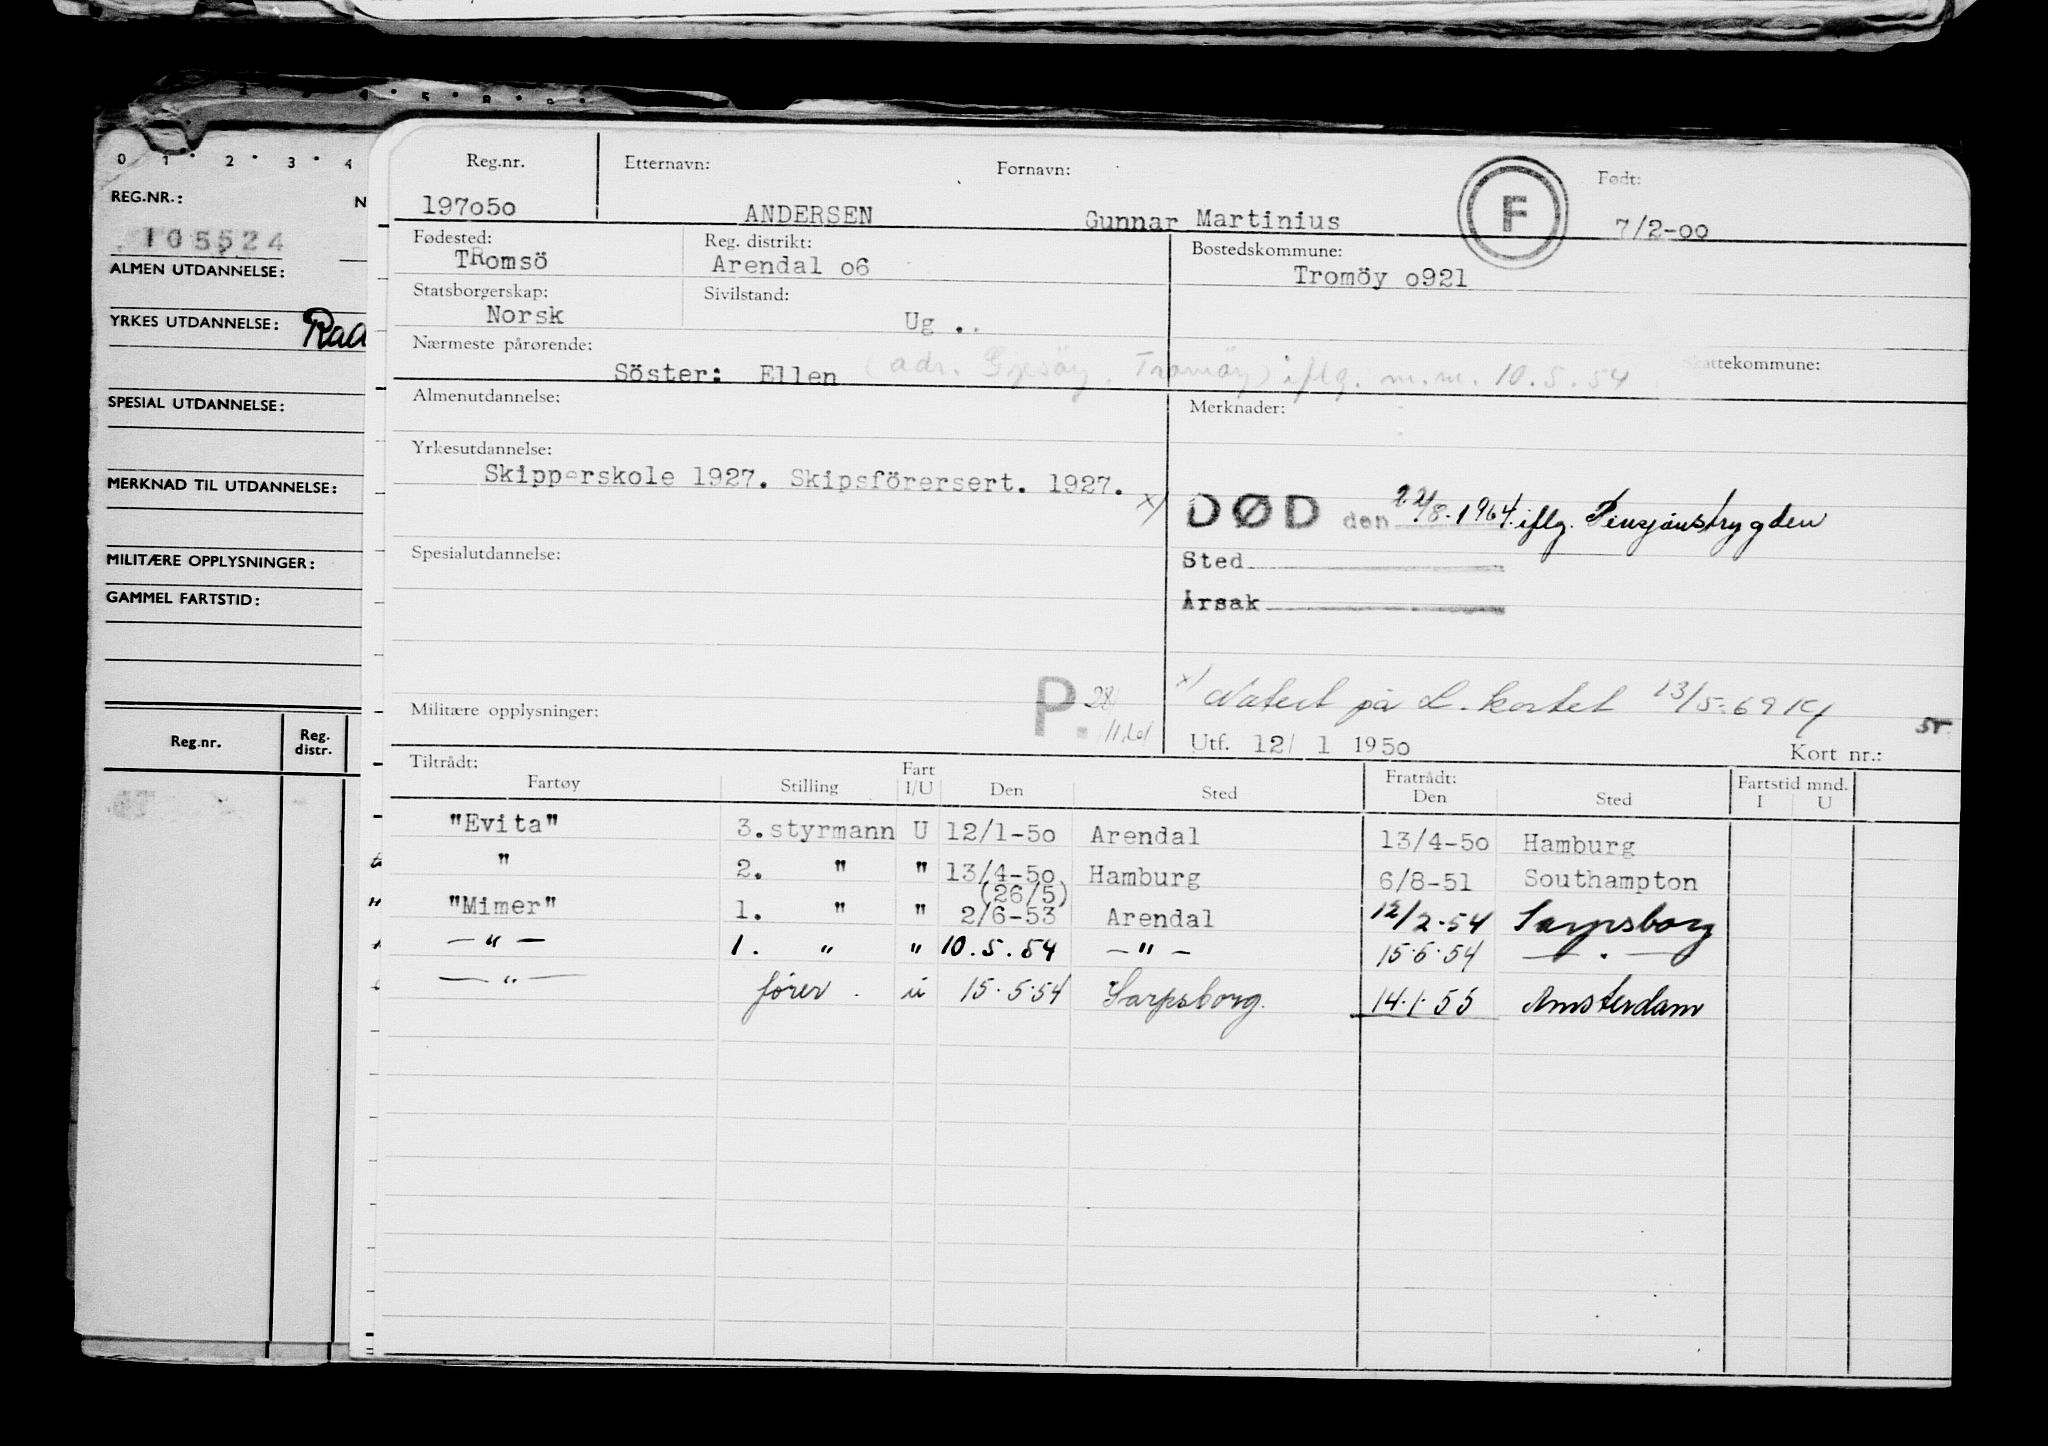 0 1 2 3 4
REG.NR.: N
105524
ALMEN UTDANNELSE:
YRKES UTDANNELSE: Rad
SPESIAL UTDANNELSE:
MERKNAD TIL UTDANNELSE:
MILITÆRE OPPLYSNINGER:
GAMMEL FARTSTID:
Reg.nr. Reg. distr.
Reg.nr. Etternavn: Fornavn: Født:
197o5o ANDERSEN Gunnar Martinius F 7/2-oo
Fødested: Reg. distrikt: Bostedskommune:
TRomsö Arendal o6 Tromöy o921
Statsborgerskap: Sivilstand:
Norsk Ug ..
Nærmeste pårørende: Skattekommune:
Söster: Ellen (adr. Gjesöy, Tromöy) iflg. m.m. 10.5.54
Almenutdannelse: Merknader:
Yrkesutdannelse:
Skipperskole 1927. Skipsförersert. 1927.
x) DØD den 22/8.1964 iflg. Pensjonstrygden
Spesialutdannelse: Sted
Årsak
P. 28/
x) Notert på L. kortet 13/5-69
Militære opplysninger:
Utf. 12/ 1 195o Kort nr.:
Tiltrådt: Fratrådt: Fartstid mnd.
Fartøy Stilling Fart I/U Den Sted Den Sted I U
"Evita" 3.styrmann U 12/1-5o Arendal 13/4-5o Hamburg
" 2. " " 13/4-5o Hamburg 6/8-51 Southampton
(26/5)
"Mimer" 1. " " 2/6-53 Arendal 12/2-54 Sarpsborg
— " — 1. " " 10.5.54 — " — 15.5.54 — " —
— " — fører. u 15.5.54 Sarpsborg. 14.1.55 Amsterdam